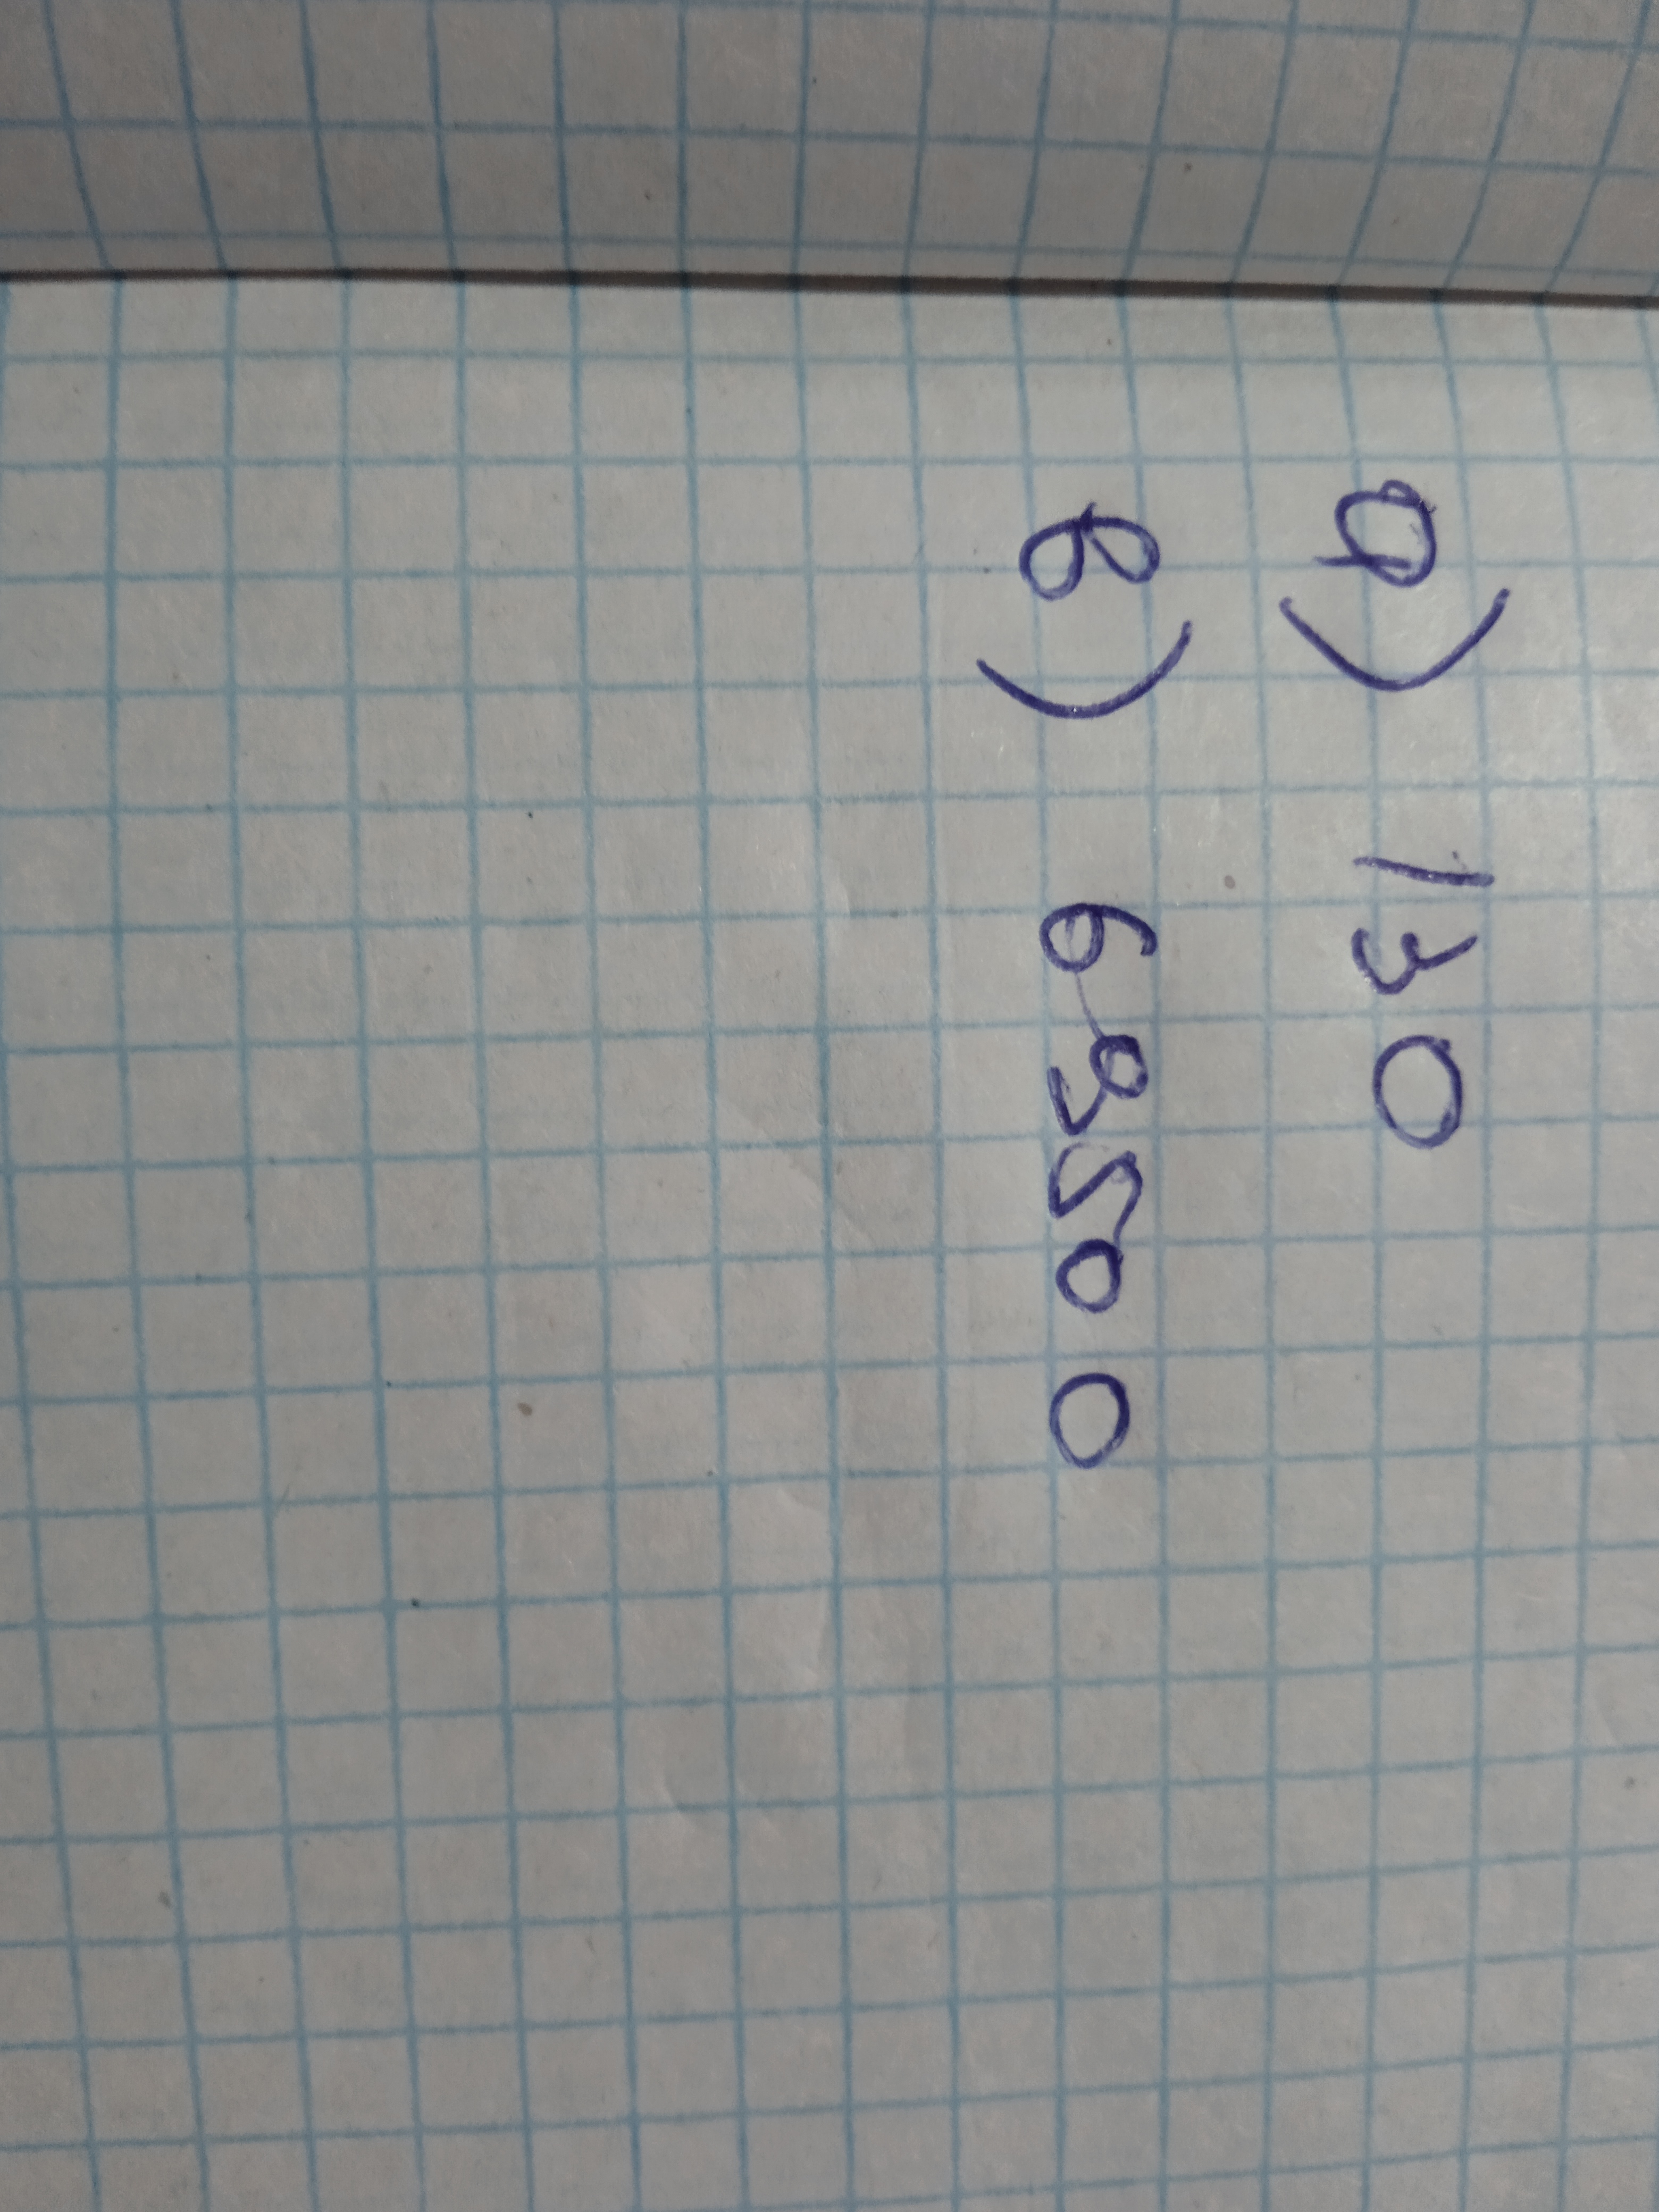 а) 130
в) 69500